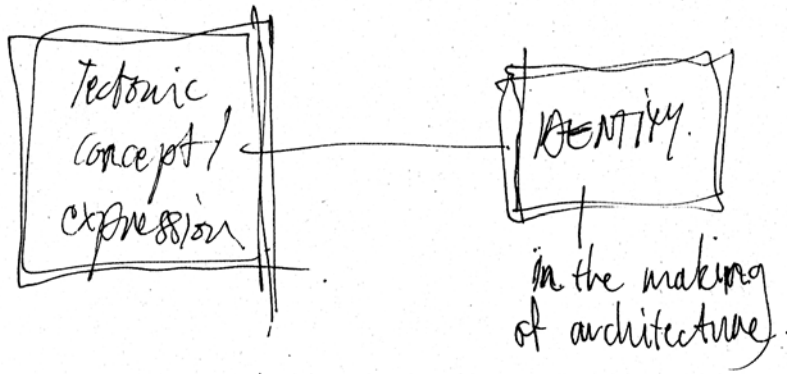 Tectonic
concept/
expression
IDENTITY.
in the making
of architecture.